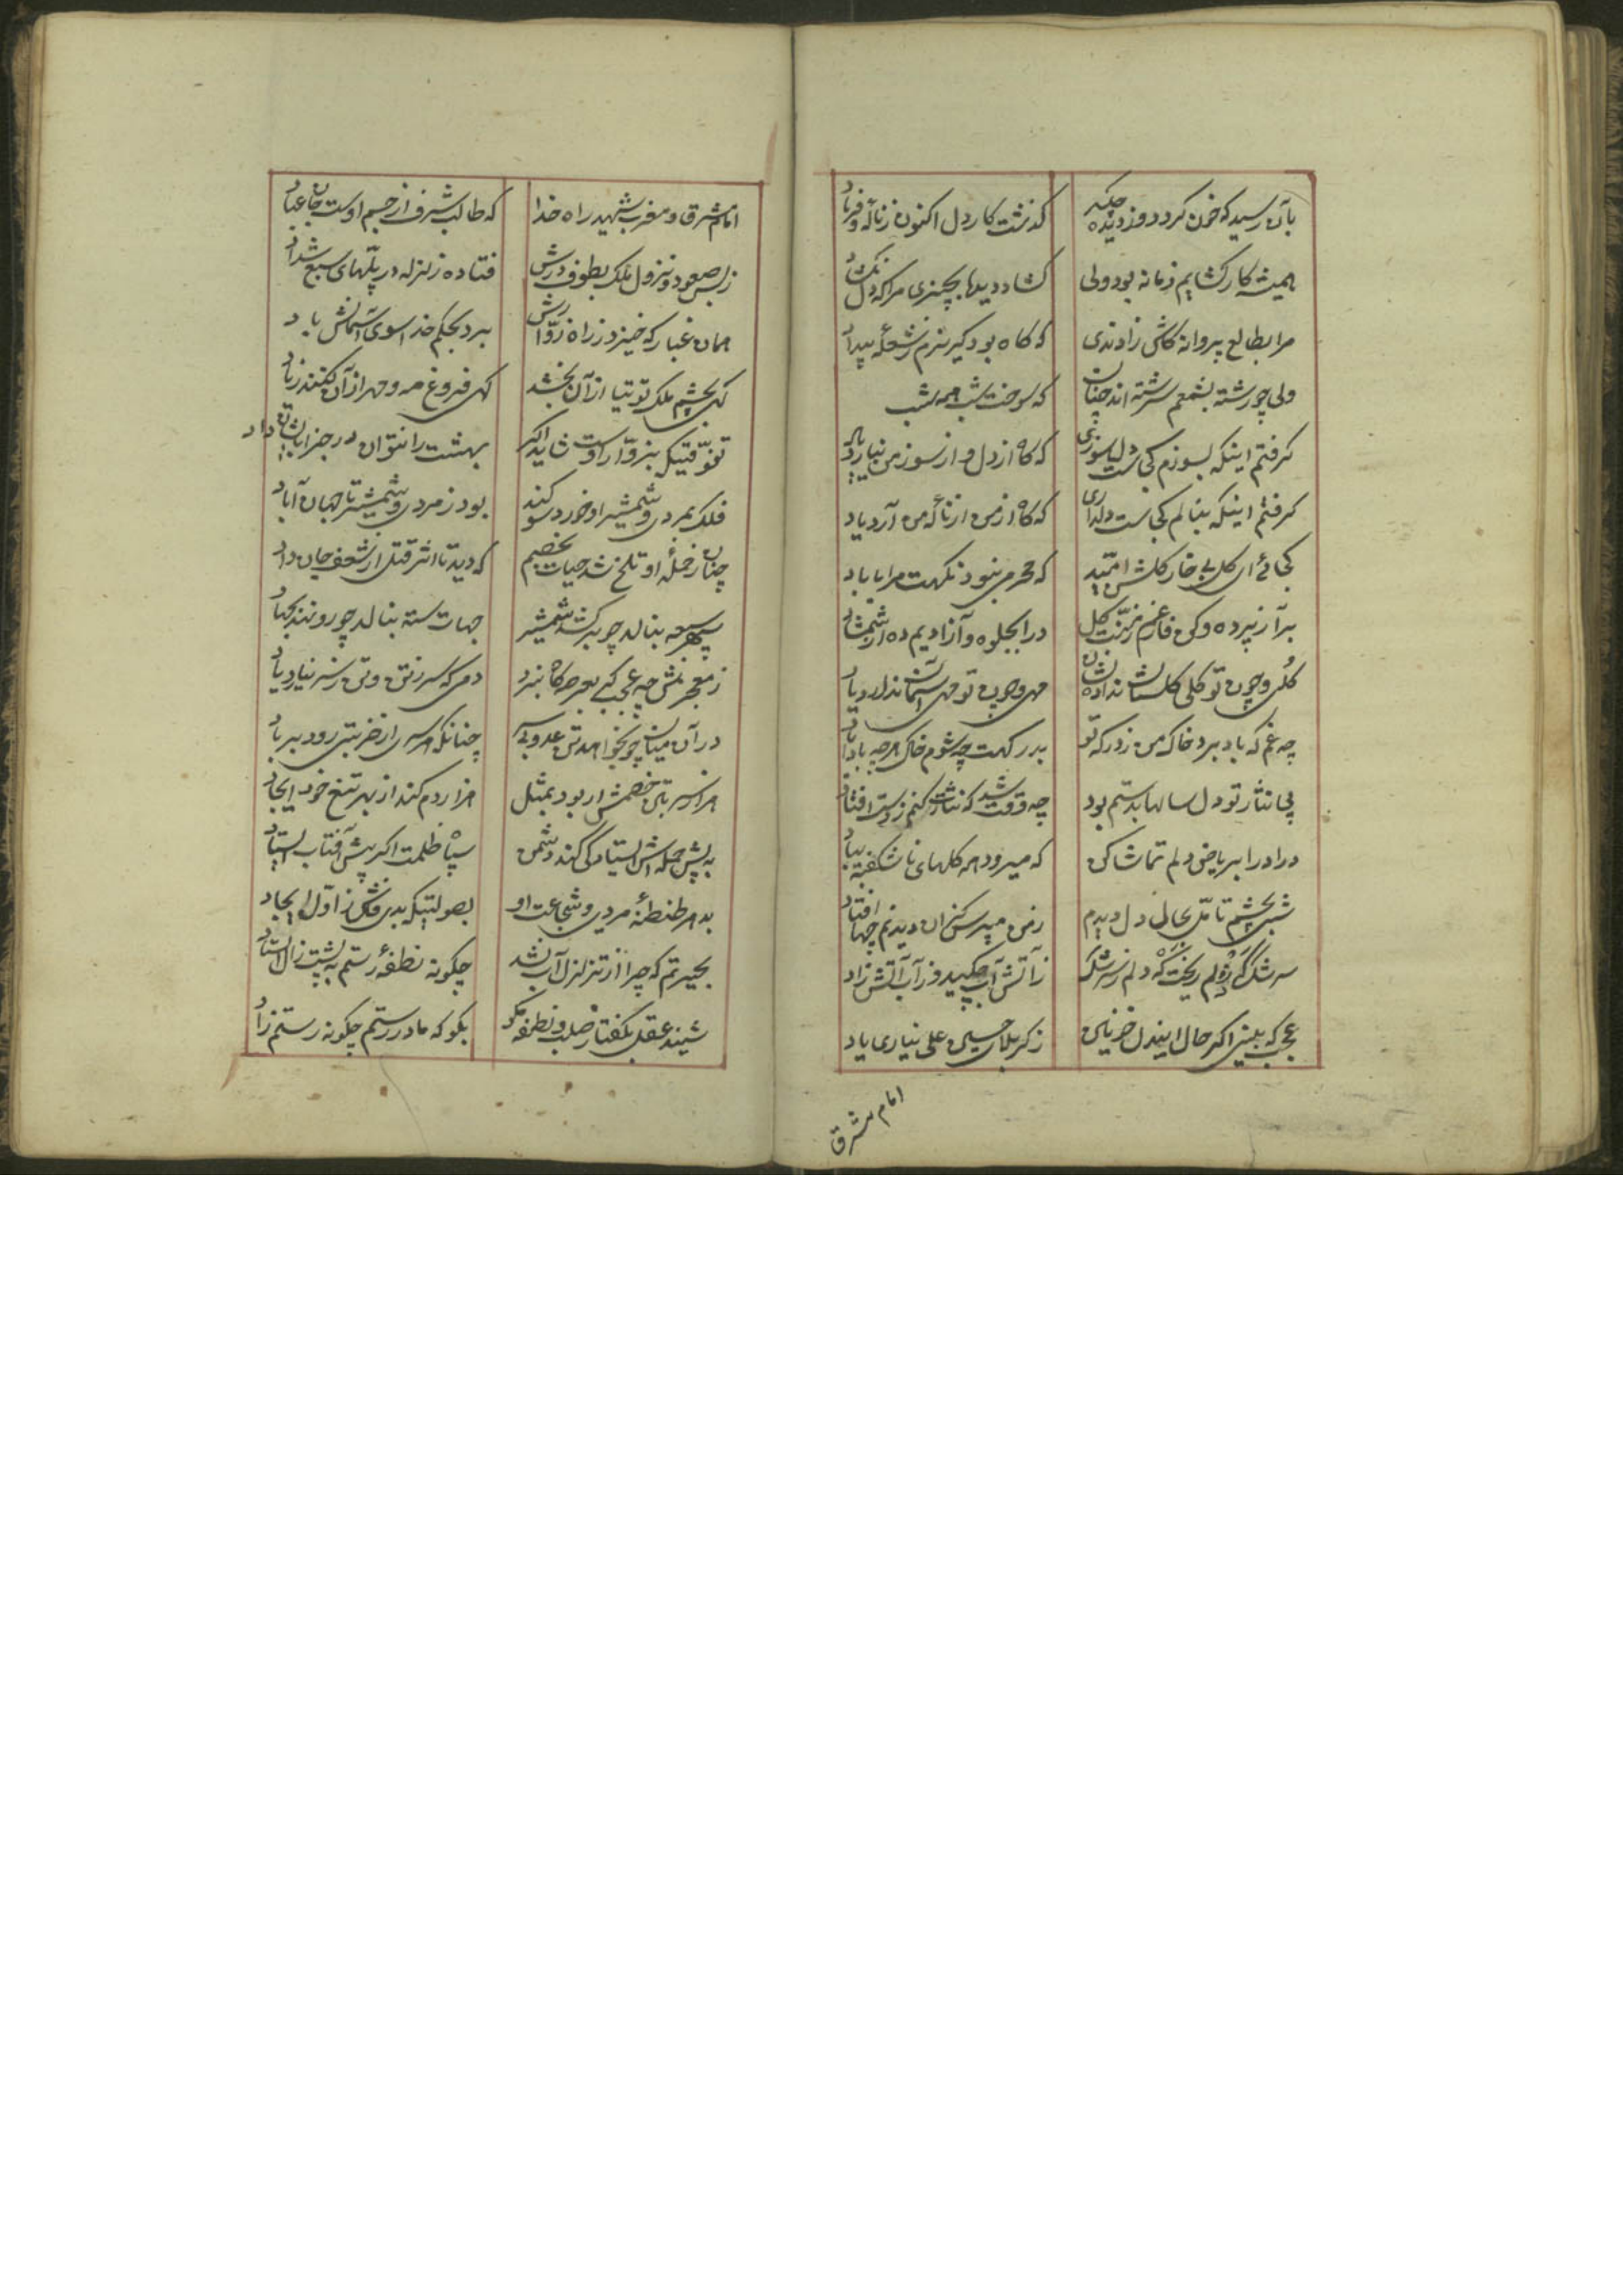 بآن رسید که خون کردد و ز دیده چکد گذشت کار دل اکنون ز ناله و فریاد
همیشه کار کشایم زمانه بود ولی کشاد دیدها بچیزی مرا که دل نکشاد
مرا بطالع پروانه کاش زادندی که کاه بود کیرنرم ز شعله بیداد
ولی چو رشته بشمعم سرشته اند چنان که سوخت شب همه شب
کرفتم اینکه بسوزم کجاست دلسوزی که کاه از دل و از سوز من نیارد یاد
کرفتم اینکه بنالم کجاست دلداری که کاه از من و از ناله من آرد یاد
کجائی ای کل بی خار کلشن امید که محرمی نبود نکهت مرا با باد
برآ ز پرده و کن فارغم ز منت کل درا بجلوه و آزادیم ده از شمشاد
کلی و چون تو کلی کلستان نداده نشان مهی و چون تو مهی آسمان ندارد یاد
چه غم که باد برد خاک من ز درکه تو بدرکهت چه شوم خاک هر چه باداباد
پی نثار تو دل سالها بدستم بود چه وقت شد که نثارت کنم ز دست افتاد
درا درا بریاض دلم تماشا کن که میرود همه کلهای ناشکفته بباد
شبی بچشم تامل بحال دل دیدم ز من مپرس کزان دیدنم چها افتاد
سرشک که ز دلم ریخت که دلم ز سرشک ز آتش آب چکید و ز آب آتش زاد
عجب که بینی اکر حال ایندل خونین ز کربلای حسین علی نیاری یاد
امام مشرق
امام مشرق و مغرب شهید راه خدا که طالب شرف از جسم اوست جان عباد
ز بس صعود و نزول ملک بطوف درش فتاده زلزله در پلهای سبع شداد
همان غبار که خیزد ز راه زوارش برد بحکم خدا سوی آسمانش باد
کهی بچشم ملک توتیا از آن بخشد کهی فروغ مه و مهر از آن کنند زیاد
تفوقیکه بزوار اوست شاید اکر بهشت را نتوان در جزا بایشان داد
فلک بمردی و شمشیر او خورد سوکند بود ز مردی و شمشیر تا جهان آباد
چنان ز حمله او تلخ شد حیات بخصم که دید تا اثر قتل از شعف جان داد
سپهر سبعه بنالد چو برکشد شمشیر جهات سته بنالد چو رو نهد بجهاد
ز معجزش چه عجب کی بعرصه کاه نبرد دمی که سر ز تن و تن ز سر نیارد یاد
در آن میان چو بخواهد تن عدو بی سر چنانکه هر سری از ضربتی رود بر باد
هزار سر بتن خصمش ار بود بمثل هزار دم کند از بهر تیغ خود ایجاد
به پیش حمله اش استادکی کند دشمن سپاه ظلمت اکر پیش آفتاب استاد
بدهر طنطنه مردی و شجاعت او بصولتیکه بدی فاش ز اول ایجاد
بحیرتم که چرا از تزلزل آب نشد چکونه نطفه رستم به پشت زال استاد
شنید عقل بکفتا ز صلب و نطفه مکو بکو که مادر رستم چکونه رستم زاد